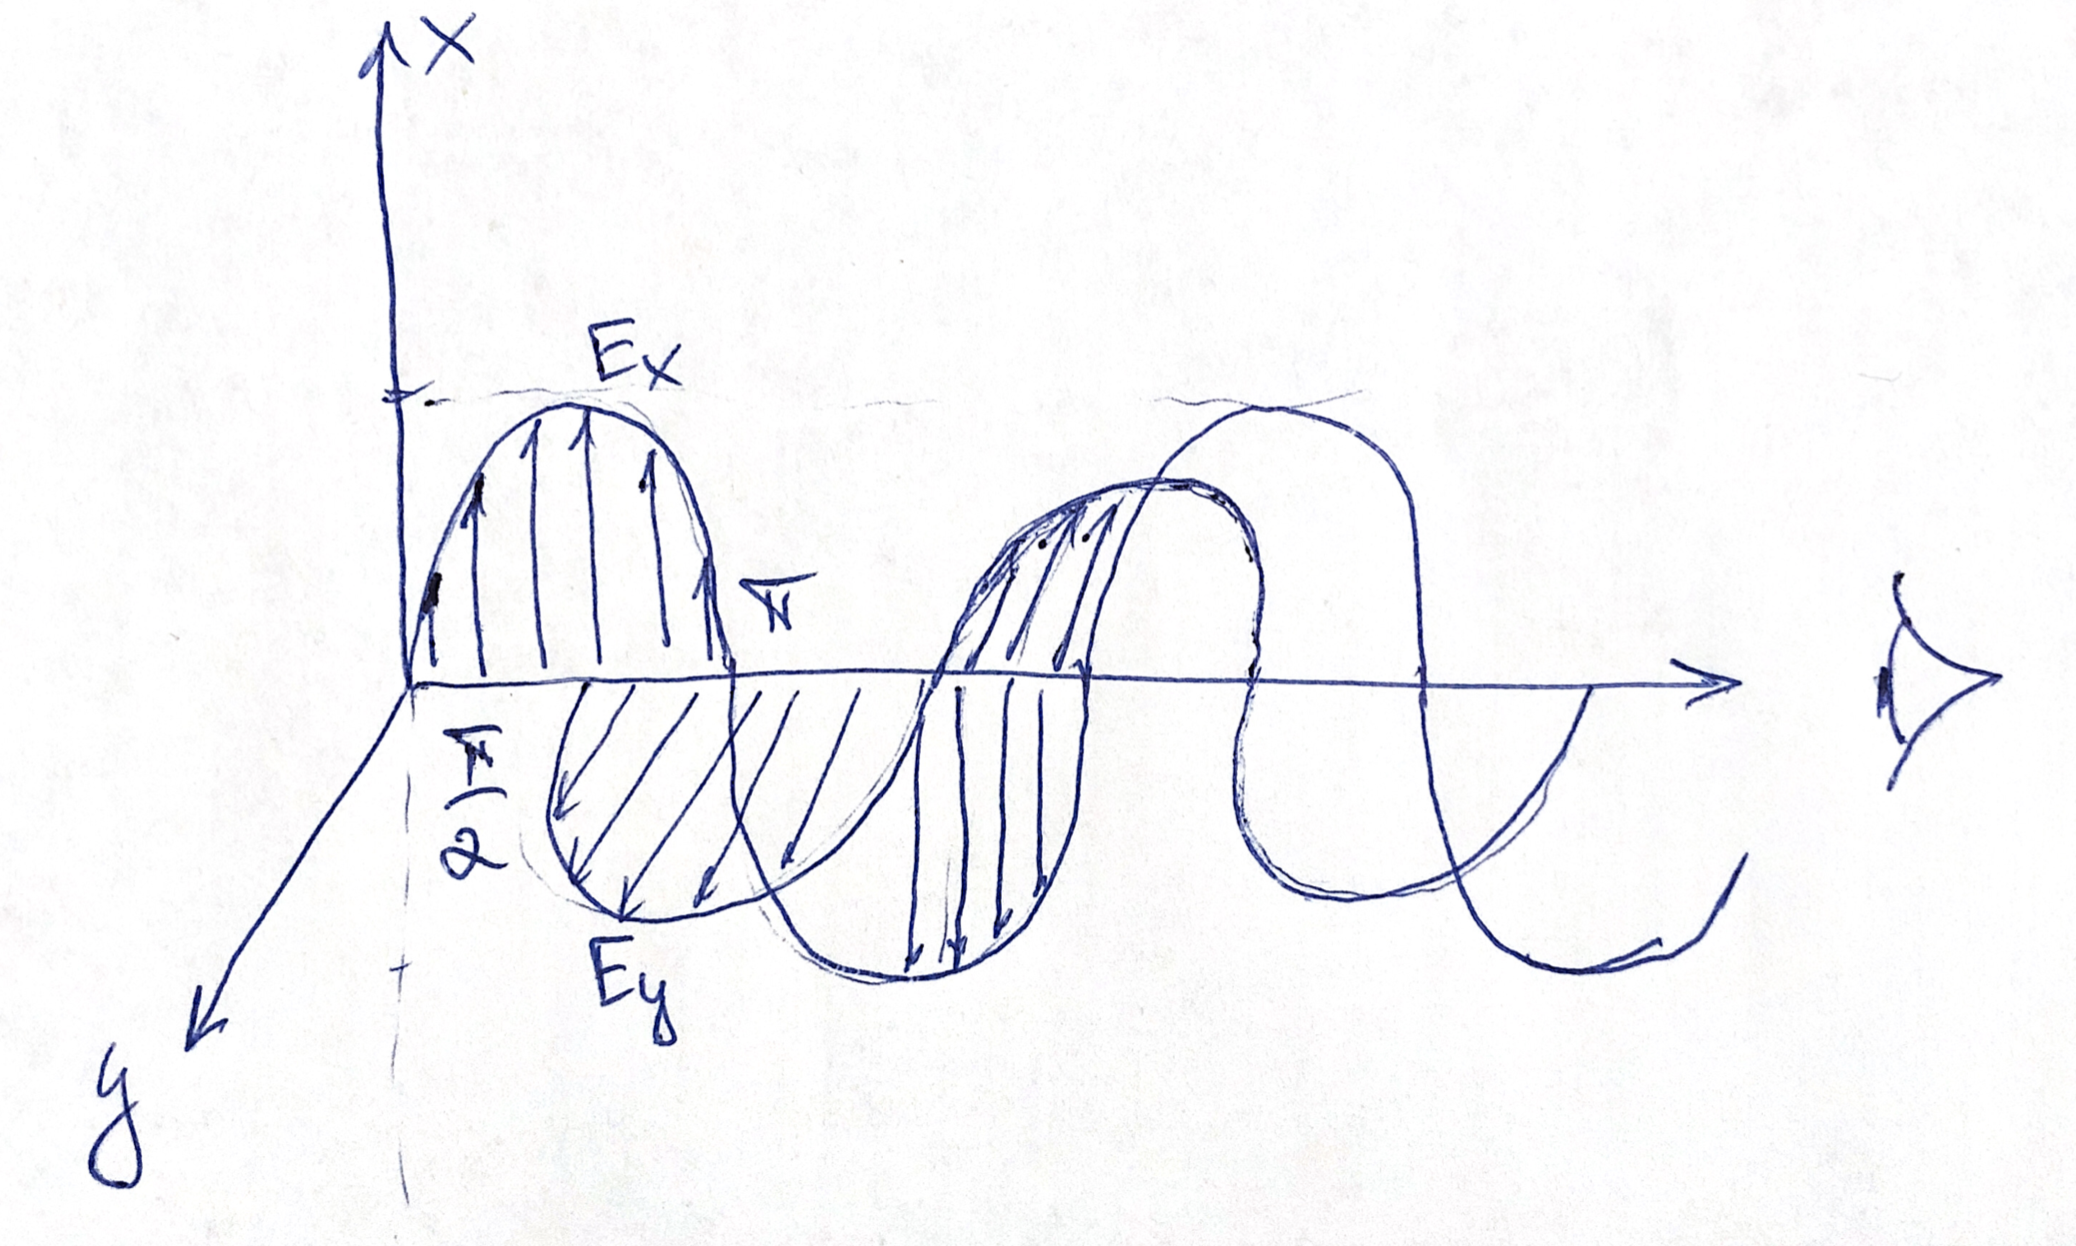 x
Ex
π
π/2
Ey
y